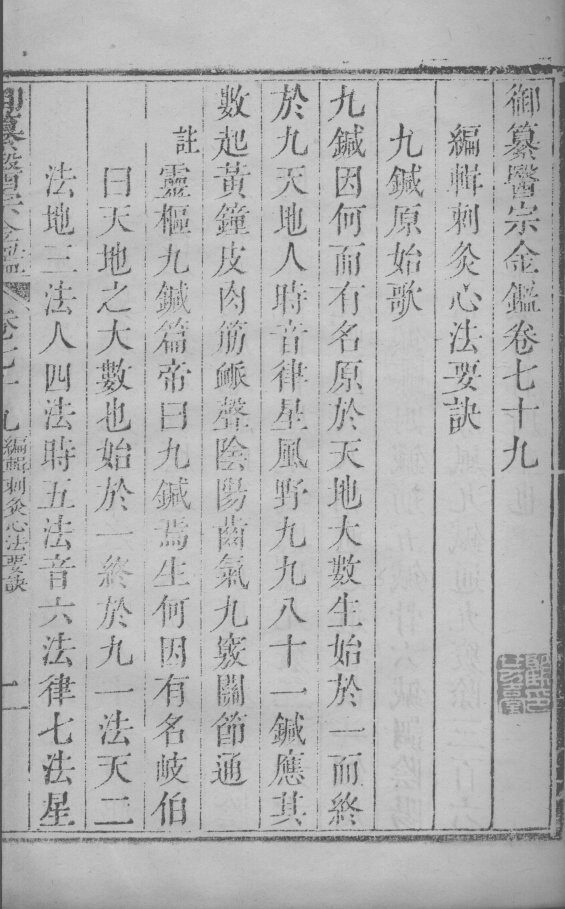 御纂醫宗金鑑卷七十九
編輯刺灸心法要訣
九鍼原始歌
九鍼因何而有名原於天地大數生始於一而終
於九天地人時音律星風野九九八十一鍼應其
數起黃鐘皮肉筋脈聲陰陽齒氣九竅關節通
註靈樞九鍼篇帝曰九鍼焉生何因有名岐伯
曰天地之大數也始於一終於九一法天二
法地三法人四法時五法音六法律七法星
御纂醫宗金鑑 卷七十九 編輯刺灸心法要訣 二